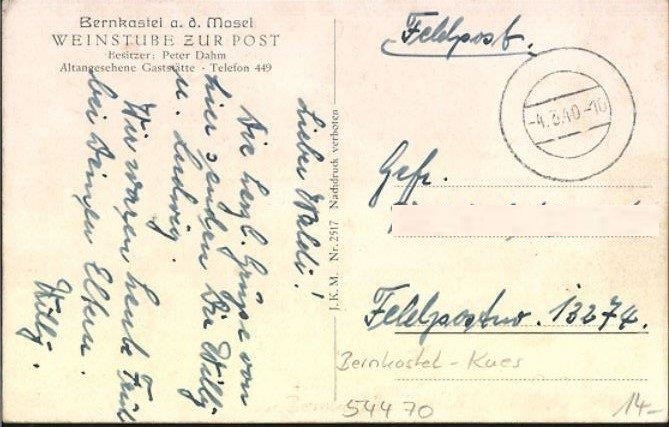 Bernkastel a. d. Mosel
WEINSTUBE ZUR POST
Besitzer: Peter Dahm
Altangesehene Gaststätte · Telefon 449
Lieber Waldi!
Die herzl. Grüße von
hier senden Dir Willy
u. Ludwig.
Wir waren heute
bei Deinen Eltern.
Willy.
J.K.M. Nr. 2517 Nachdruck verboten
Feldpost.
-4.8.40-10
Gefr.
Feldpostnr. 13274.
Bernkastel-Kues
54470
14-